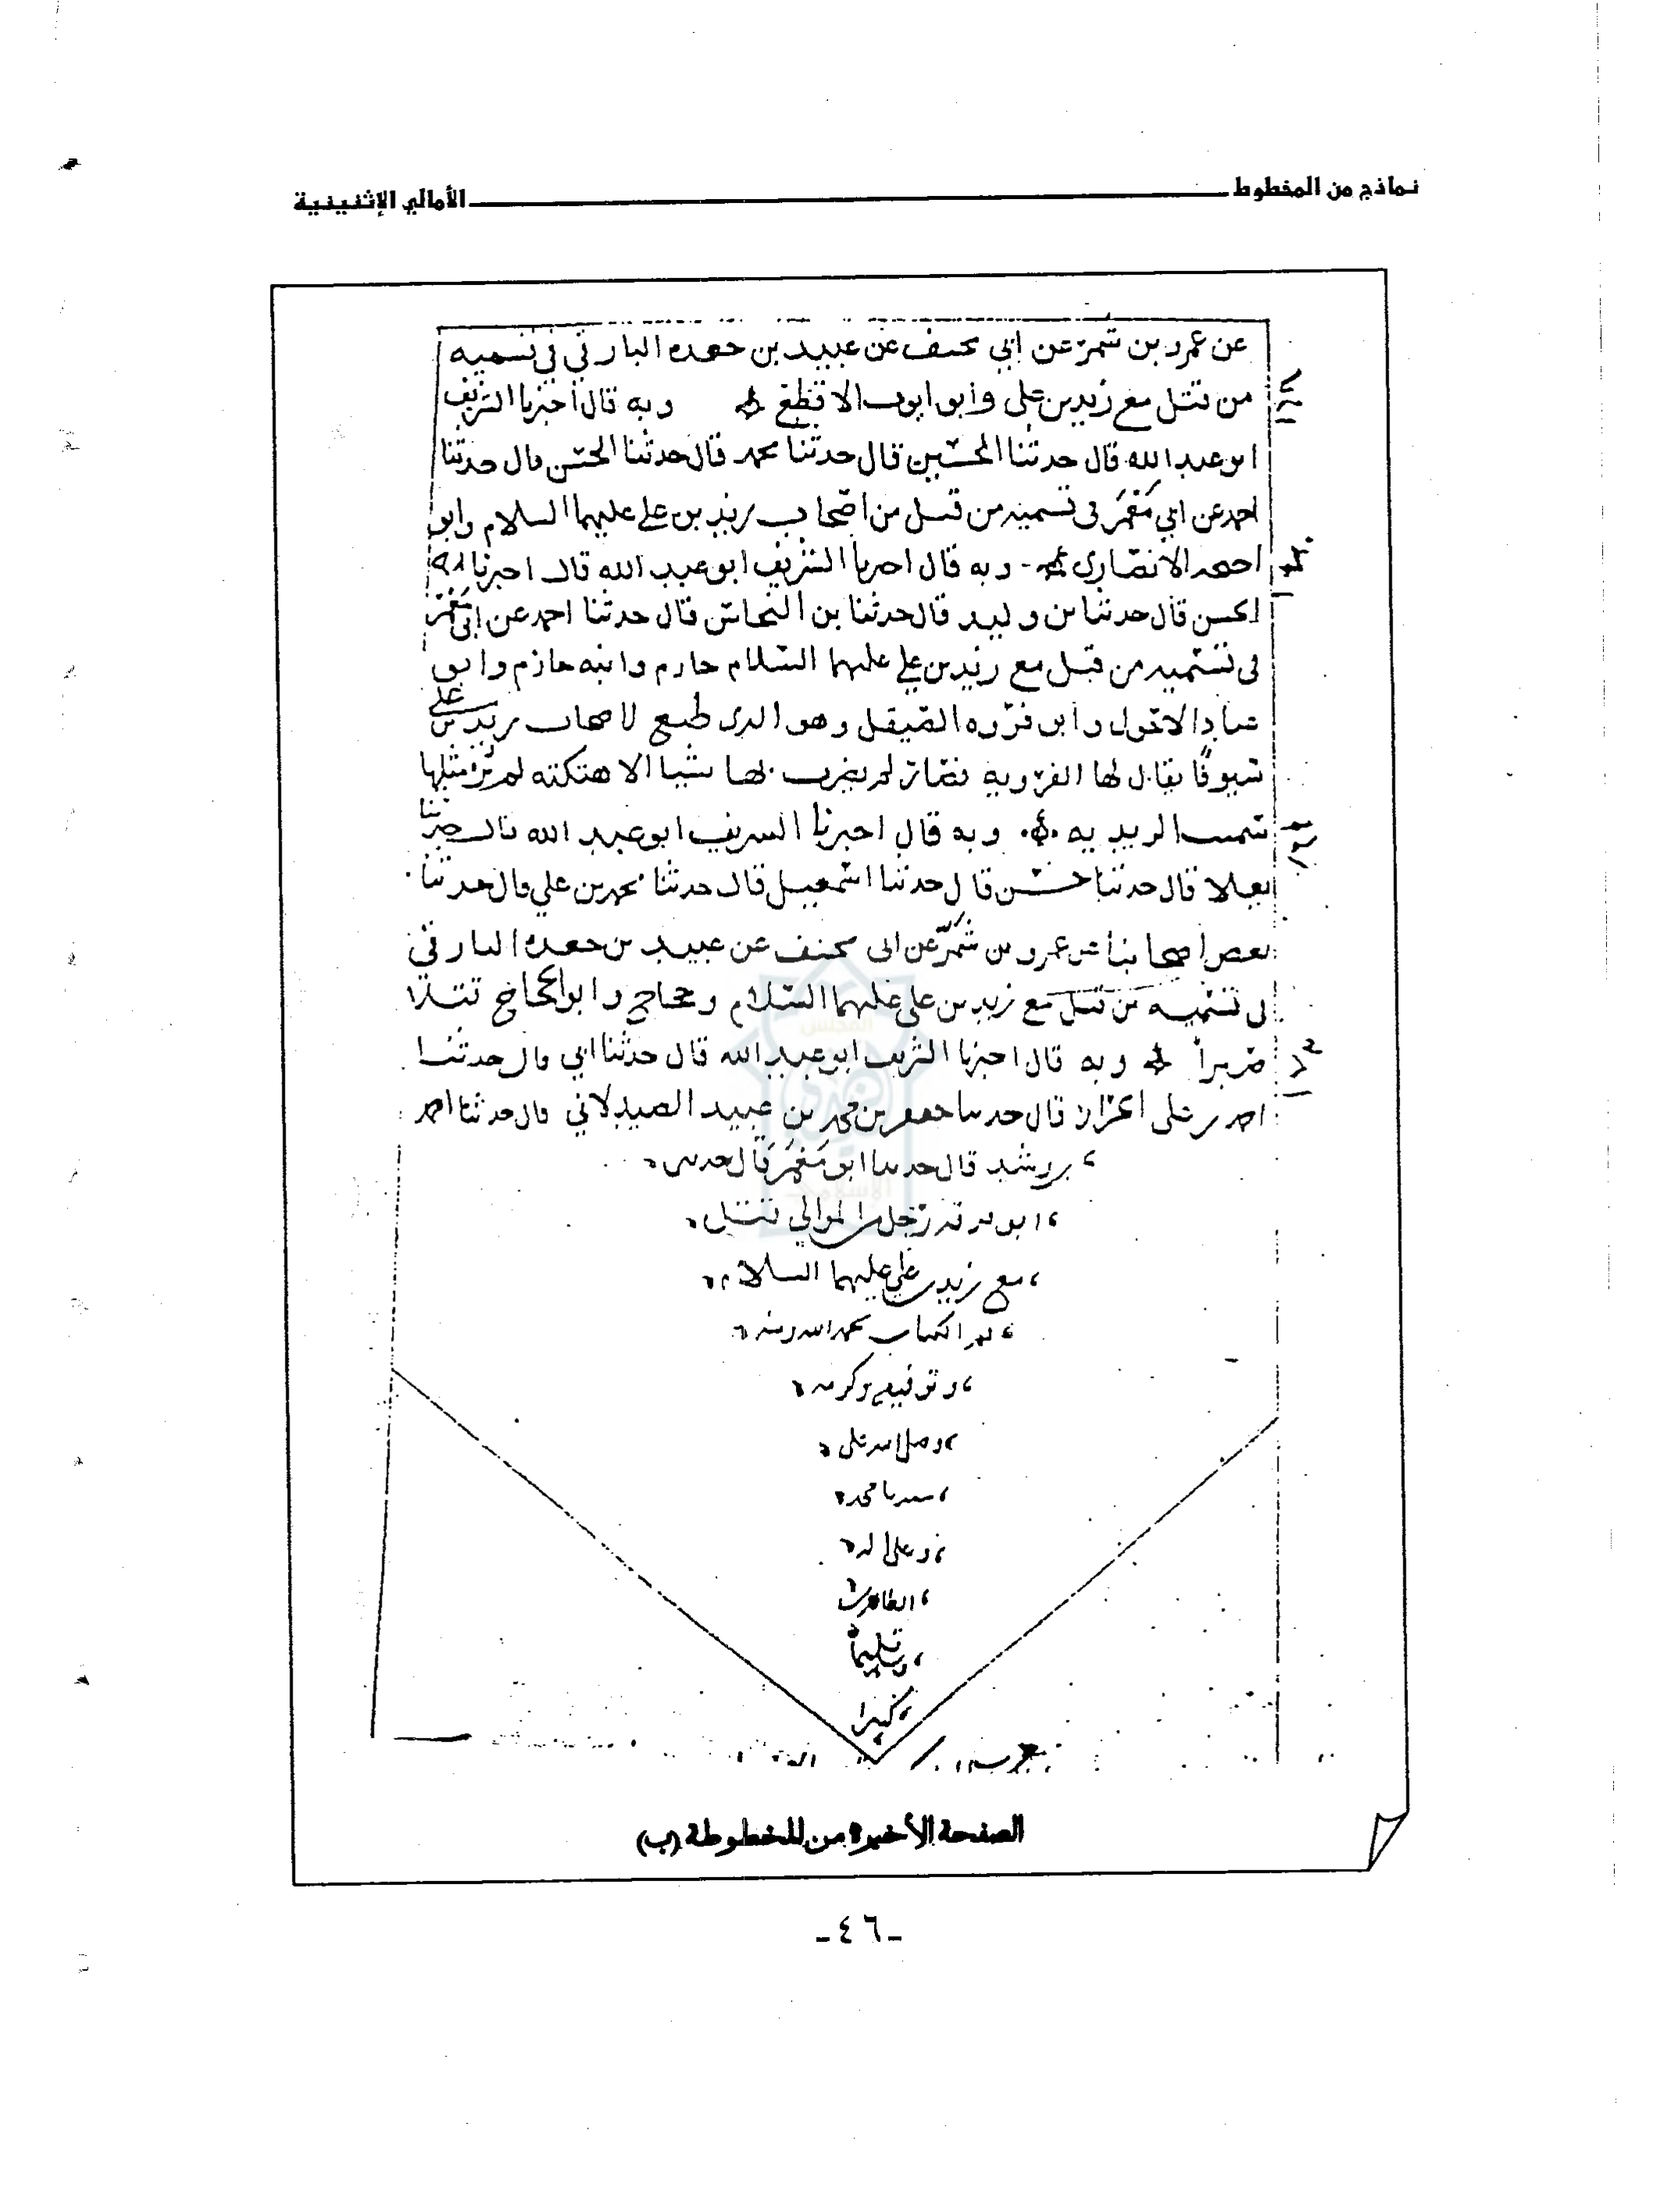 نماذج من المخطوط
الأمالي الإثنينية
عن عمرو بن شمر عن ابي مخنف عن عبيد بن جعده البارقي في تسميه
من قتل مع زيد بن علي وأبو ايوب الاقطع وبه قال أخبرنا الشريف
ابو عبد الله قال حدثنا الحسين قال حدثنا محمد قال حدثنا الحسن قال حدثنا
احمد عن ابي معمر في تسميه من قتل من اصحاب زيد بن علي عليهما السلام وابو
الانصاري وبه قال اخبرنا الشريف ابو عبد الله قال اخبرنا
الحسن قال حدثنا بن وليد قال حدثنا بن النحاس قال حدثنا احمد عن ابي معمر
في تسميه من قتل مع زيد بن علي عليهما السلام حازم وابنه حازم وابو
عباد الاحول وأبو فروه الصيقل وهو الذي طبع لاصحاب زيد بن علي
سيوفا يقال لها الفرويه لم يضرب بها شيا الا هتكته لم تر مثلها
وبه قال اخبرنا الشريف ابو عبد الله قال حدثنا
قال حدثنا حسن قال حدثنا اسمعيل قال حدثنا محمد بن علي قال حدثنا
بعض اصحابنا عن عمرو بن شمر عن ابي مخنف عن عبيد بن جعده البارقي
في تسميه من قتل مع زيد بن علي عليهما السلام وحجاج وابو الحجاج قتلا
صبرا وبه قال اخبرنا الشريف ابو عبد الله قال حدثنا ابي قال حدثنا
احمد بن علي الخزاز قال حدثنا جعفر بن محمد بن عبيد الصيدلاني قال حدثنا احمد
بن رشد قال حدثنا ابو معمر قال حدثني
ابو رجل من الموالي قتل
مع زيد بن علي عليهما السلام
تم الكتاب بحمد الله ومنه
وتوفيقه وكرمه
وصلى الله على
سيدنا محمد
وعلى اله
الطاهرين
وسلم تسليما
كثيرا
الصفحة الأخيرة من المخطوطة (ب)
-٤٦-